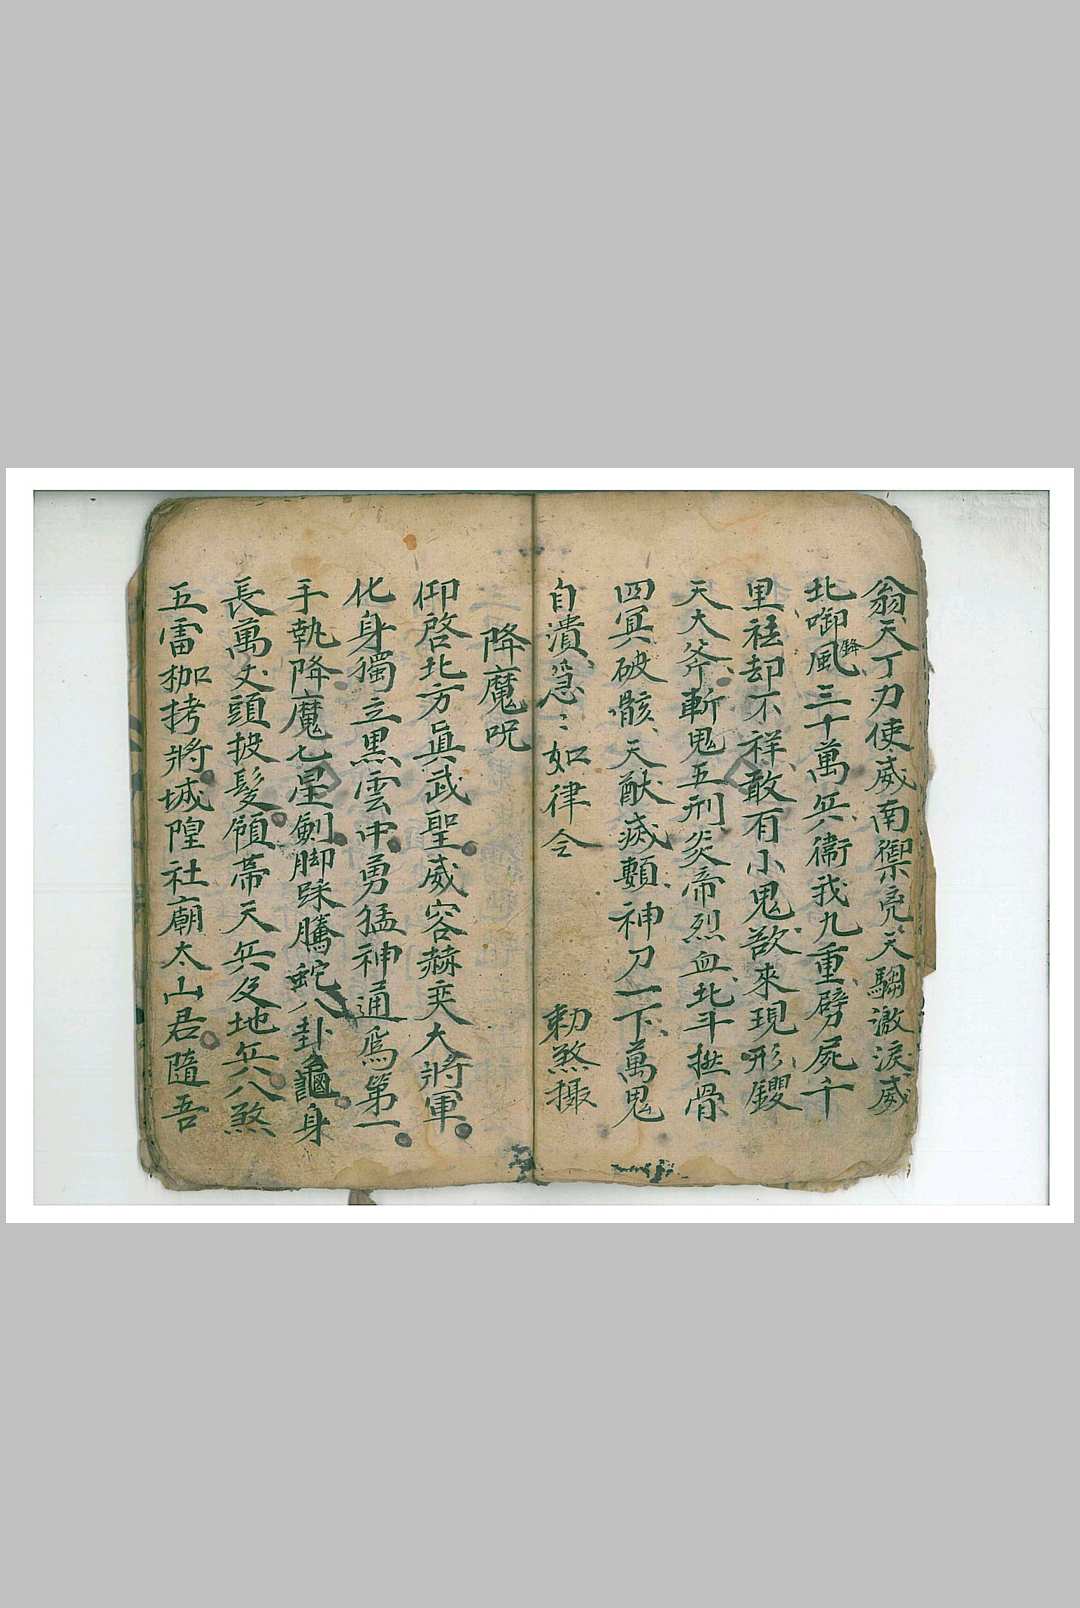 翁天丁刃使威南禦亮天騶激淚威
北啣風鋒三十萬兵衛我九重劈屍千
里袪却不祥敢有小鬼欲來現形钁
天大斧斬鬼五刑炎帝烈血北斗㩠骨
四冥破骸天猷滅䫫神刀一下萬鬼
自潰急〻如律令 勅煞攝
降魔呪
仰啓北方眞武聖威容赫奕大將軍
化身獨立黒雲中勇猛神通爲第一
手執降魔七星劍脚踩騰蛇八卦龜身
長萬丈頭披髮領帶天兵及地兵八煞
五雷枷拷將城隍社廟太山君隨吾